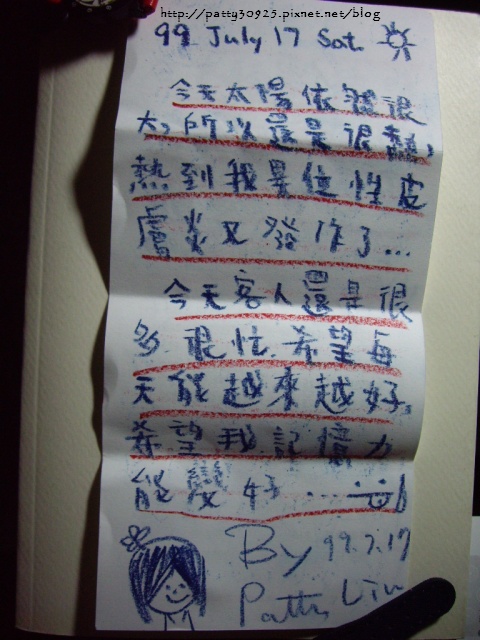 http://patty30925.pixnet.net/blog
99 July 17 Sat.
今天太陽依舊很
大,所以還是很熱,
熱到我異位性皮
膚炎又發作了...
今天客人還是很
多很忙希望每
天能越來越好,
希望我記憶力
能變好...
By 99.7.17
Patty Liu